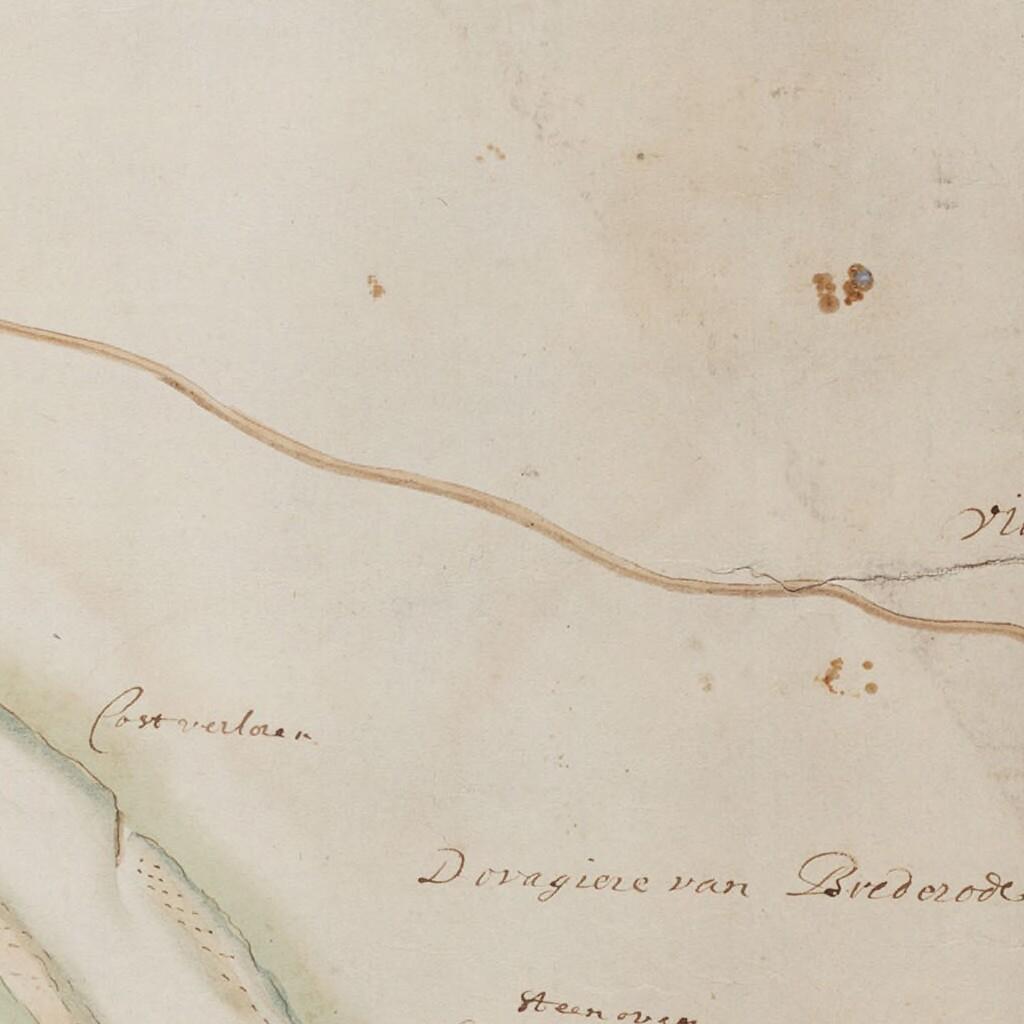 Cost verloren
Dovagiere van Brederode
steenoven